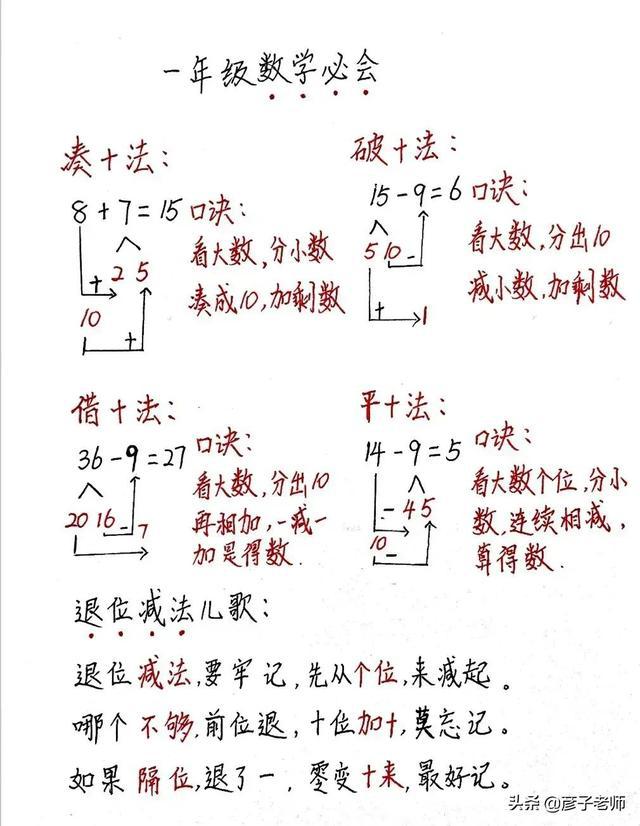 一年级数学必会
凑十法：
8+7=15
口诀：
看大数，分小数
凑成10，加剩数
+ 2 5
10
+
破十法：
15-9=6
口诀：
看大数，分出10
减小数，加剩数
5 10 -
+ 1
借十法：
36-9=27
口诀：
看大数，分出10
再相加，一减一
加是得数.
20 16 - 7
平十法：
14-9=5
口诀：
看大数个位，分小
数，连续相减，
算得数.
- 4 5
10 -
退位减法儿歌：
退位减法，要牢记，先从个位，来减起。
哪个不够，前位退，十位加十，莫忘记。
如果隔位，退了一，零变十来，最好记。
头条@彦子老师